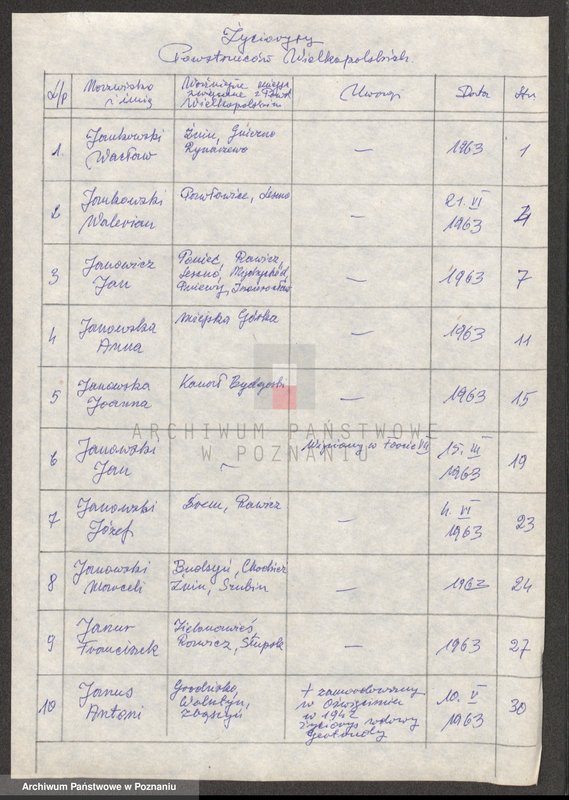 Życiorysy
Powstańców Wielkopolskich
L/p Nazwisko i imię Ważniejsze miejsc. związane z Powst. Wielkopolskim Uwagi Data Str.
1. Jankowski Wacław Żnin, Gniezno Rynarzewo — 1963 1
2 Jankowski Walerian Pawłowice, Leszno — 21. VI 1963 4
3 Janowicz Jan Poniec, Rawicz, Leszno, Międzychód, Pniewy, Inowrocław — 1963 7
4 Janowska Anna Miejska Górka — 1963 11
5 Janowska Joanna Kanał Bydgoski — 1963 15
6 Janowski Jan — w tomie VII 15. III 1963 19
7 Janowski Józef Śrem, Rawicz — 4. VI 1963 23
8 Janowski Marceli Budzyń, Chodzież Żnin, Szubin — 1962 24
9 Janur Franciszek Rawicz, Słupsk — 1963 27
10 Janus Antoni Grodzisko, Wolsztyn, Zbąszyń + zamordowany w Oświęcimiu w 1942 życiorys wdowy Gertrudy 10. V 1963 30
ARCHIWUM PAŃSTWOWE
W POZNANIU
Archiwum Państwowe w Poznaniu